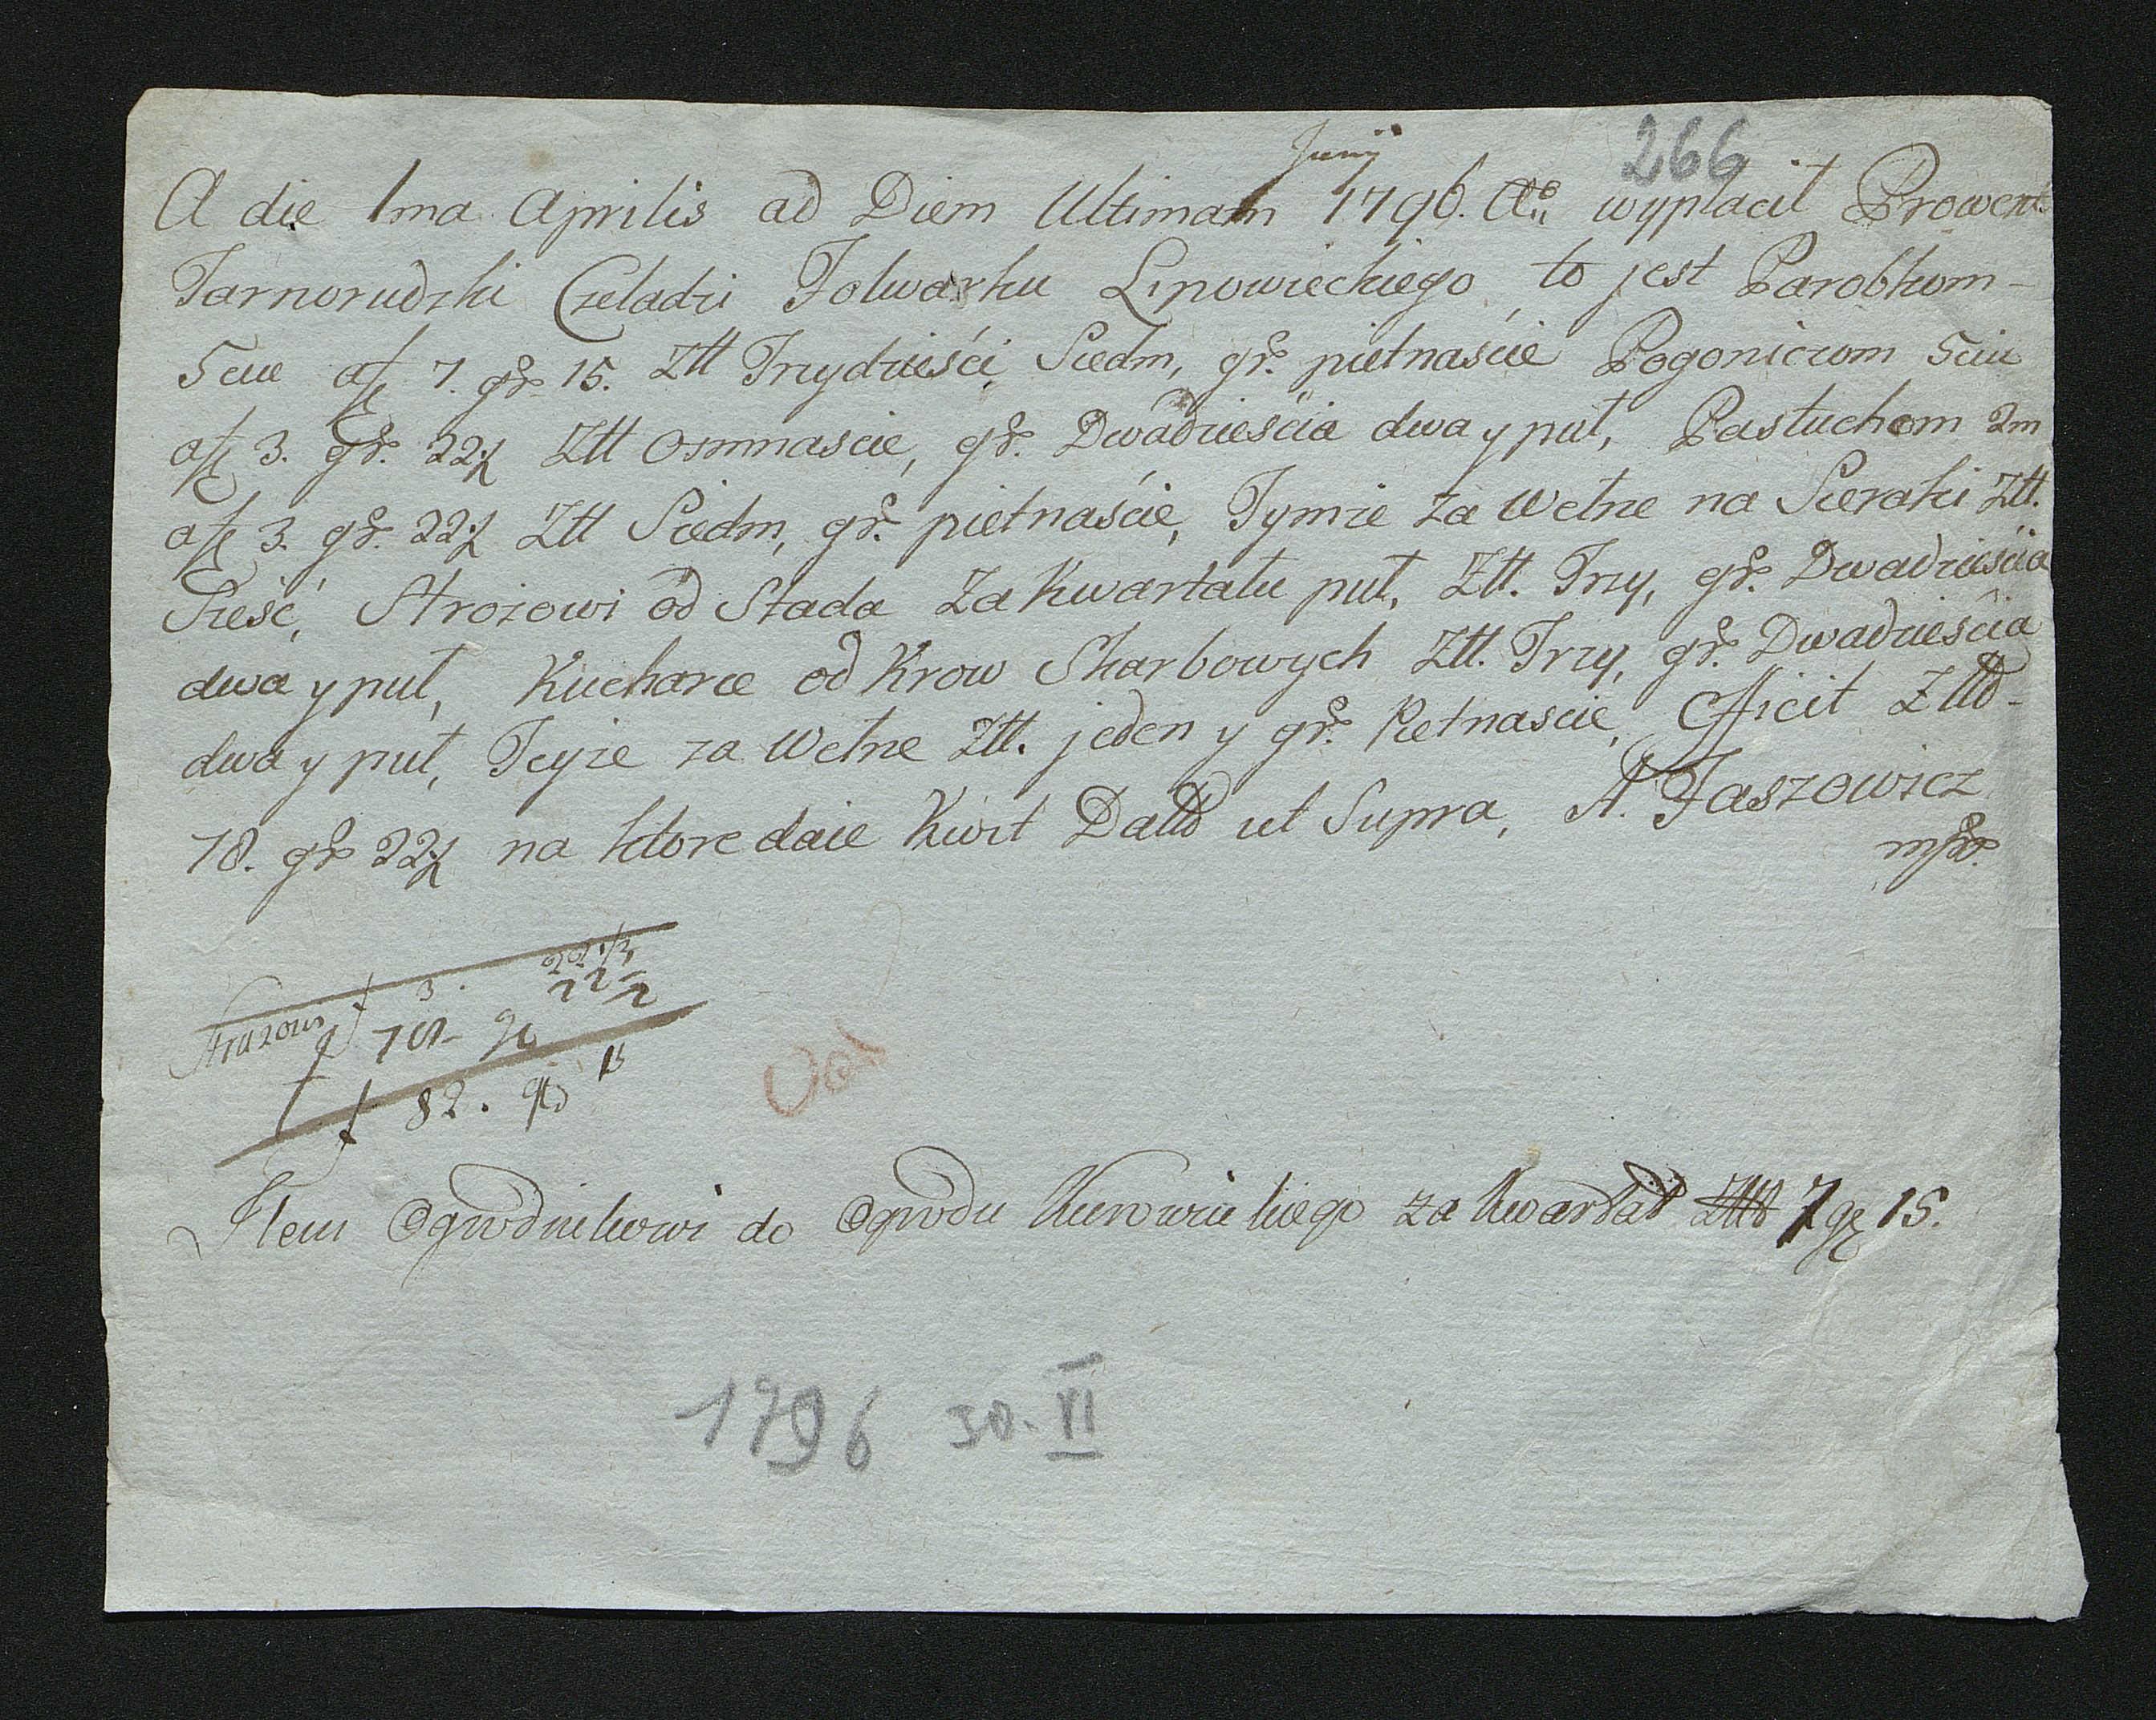 266
Junij
A die 1ma Aprilis ad Diem Ultimam 1796. Ao wypłacił Prowent
Tarnorudzki Czeladzi Folwarku Lipowieckiego, to jest Parobkom
5ciu af 7. gr 15. Złł Trzydzieści Siedm, gr. pietnaście Pogoniczom 5ciu
af 3. gr. 22½ Złł osmnascie, gr. Dwadzieścia dwa y puł, Pastuchom 2m
af 3. gr. 22½ Złł Siedm, gr. pietnaście, Tymże za Wełne na Sieraki Złł.
Sześć, Strożowi od Stada Za Kwartału puł, Złł. Trzy, gr. Dwadzieścia
dwa y puł, Kucharce od Krow Skarbowych Złł. Trzy, gr. Dwadzieścia
dwa y puł, Teyże za Wełne Złł. jeden y gr. Pietnascie, Efficit Złł
78. gr 22½ na ktore daie Kwit Datt ut Supra, A. Jaszowicz
mpr.
Struzowi f 3. 22½
f 78 - gr 22½
f 82. gr 15
Item Ogrodnikowi do Ogrodu Kurowieckiego za kwartał Złł 7 gr 15.
1796 30. VI